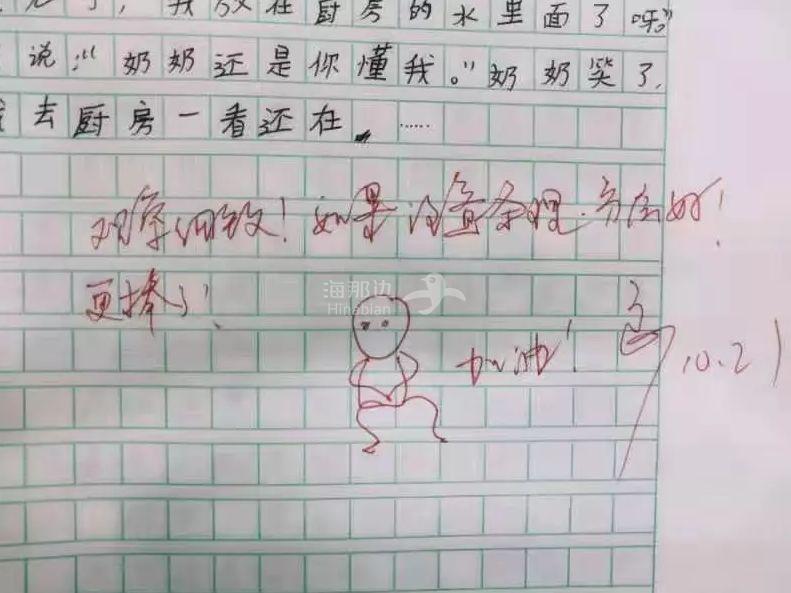 我放在厨房的水里面了呀。”
说：“奶奶还是你懂我。”奶奶笑了.
去厨房一看还在，……
观察细致！如果注意条理.方法好！
更棒了！
海那边
Hinabian
加油！
10.21